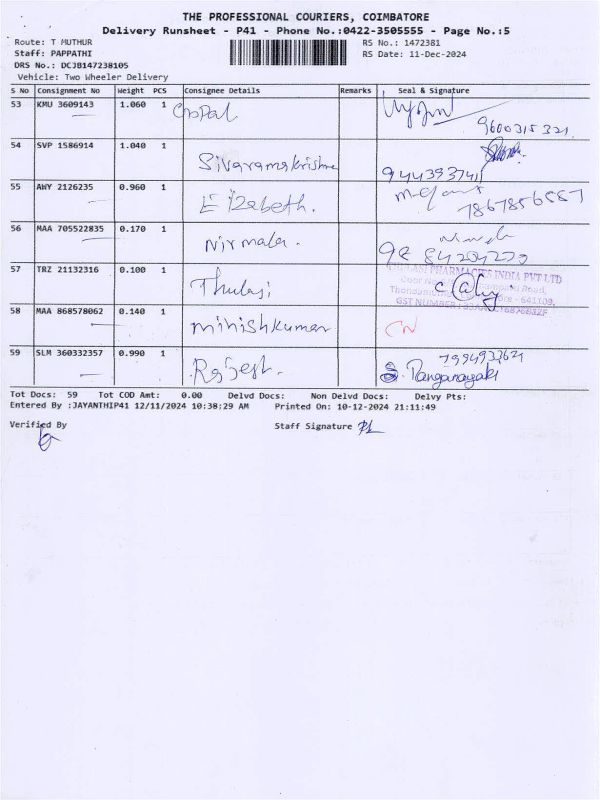 THE PROFESSIONAL COURIERS, COIMBATORE
Delivery Runsheet - P41 - Phone No.:0422-3505555 - Page No.:5
Route: T MUTHUR RS No.: 1472381
Staff: PAPPATHI RS Date: 11-Dec-2024
DRS No.: DCJB147238105
Vehicle: Two Wheeler Delivery
S No Consignment No Weight PCS Consignee Details Remarks Seal & Signature
53 KMU 3609143 1.060 1 Gopal
9600315321
54 SVP 1586914 1.040 1
Sivaramakrishna
55 AWY 2126235 0.960 1
Elizabeth.
56 MAA 705522835 0.170 1
Nirmala.
57 TRZ 21132316 0.100 1
THULASI PHARMACIES INDIA PVT LTD
Thulasi
58 MAA 868578062 0.140 1
Minishkumar CN
59 SLM 360332357 0.990 1
Rajesh.
S. Ranganayaki
Tot Docs: 59 Tot COD Amt: 0.00 Delvd Docs: Non Delvd Docs: Delvy Pts:
Entered By :JAYANTHIP41 12/11/2024 10:38:29 AM Printed On: 10-12-2024 21:11:49
Verified By Staff Signature